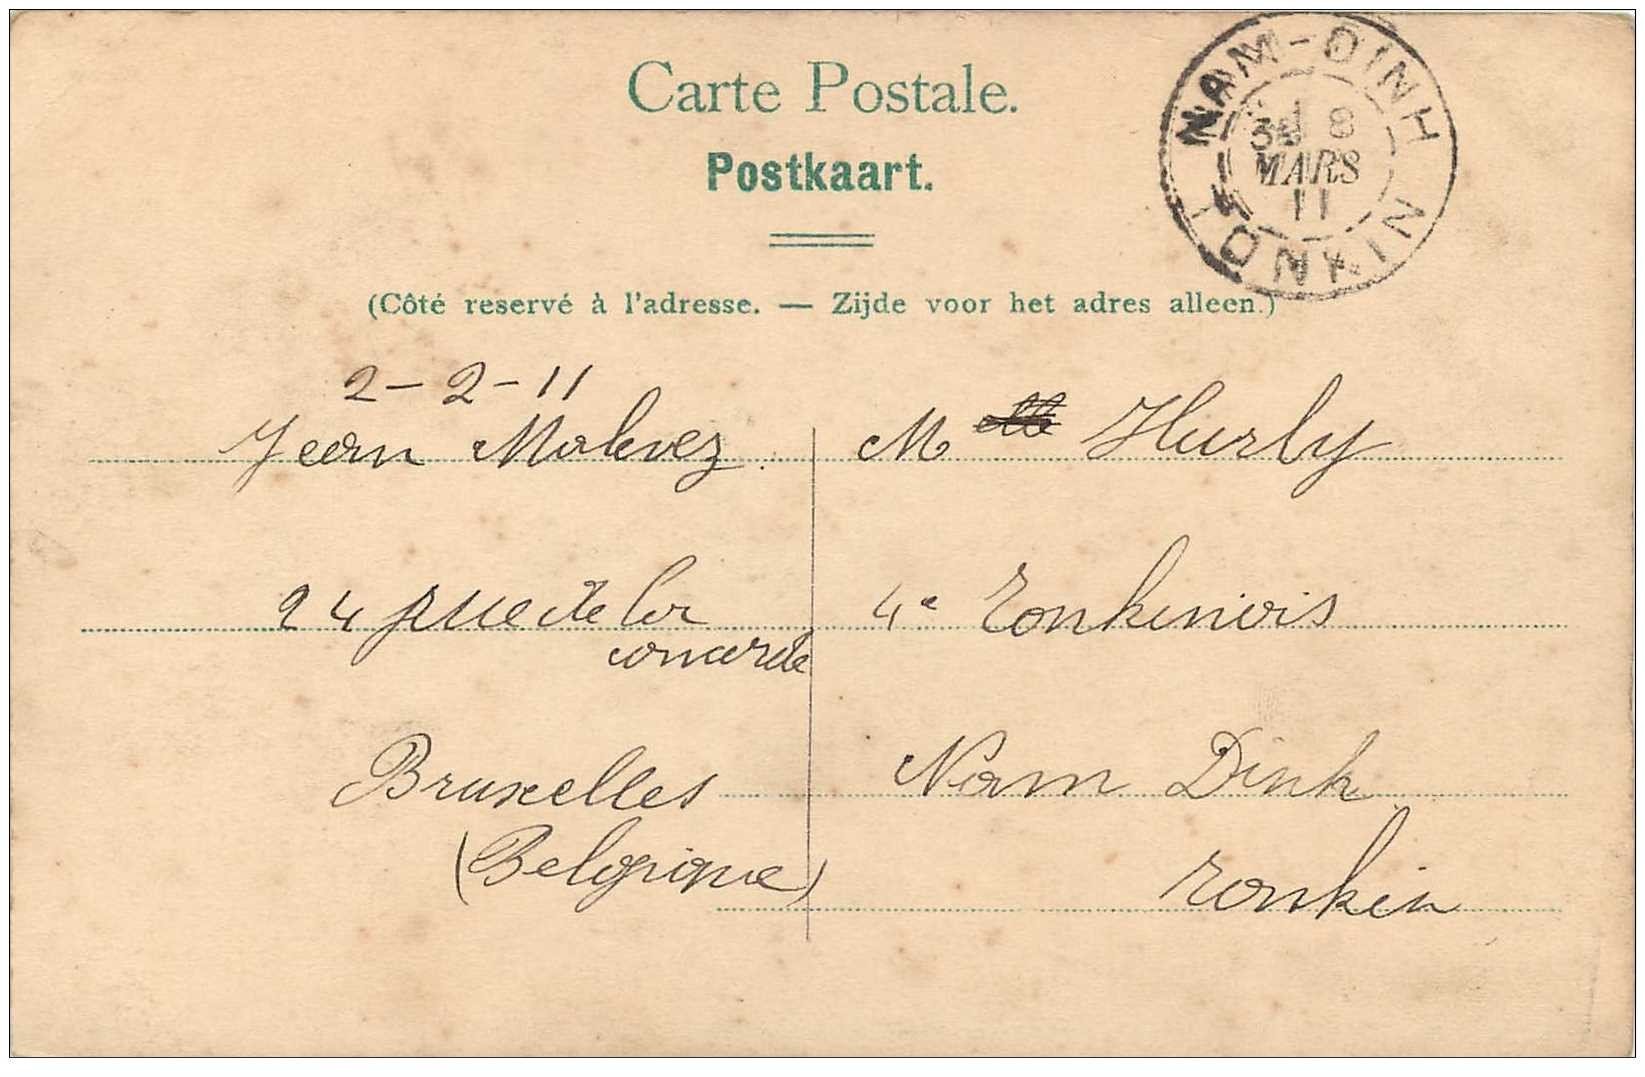 Carte Postale.
Postkaart.
NAM-DINH
8
MARS
11
(Côté reservé à l'adresse. — Zijde voor het adres alleen.)
2-2-11
Jean Malevez
24 rue de la
concorde
Bruxelles
(Belgique)
M elle Hurly
4e Tonkinois
Nam Dinh
Tonkin